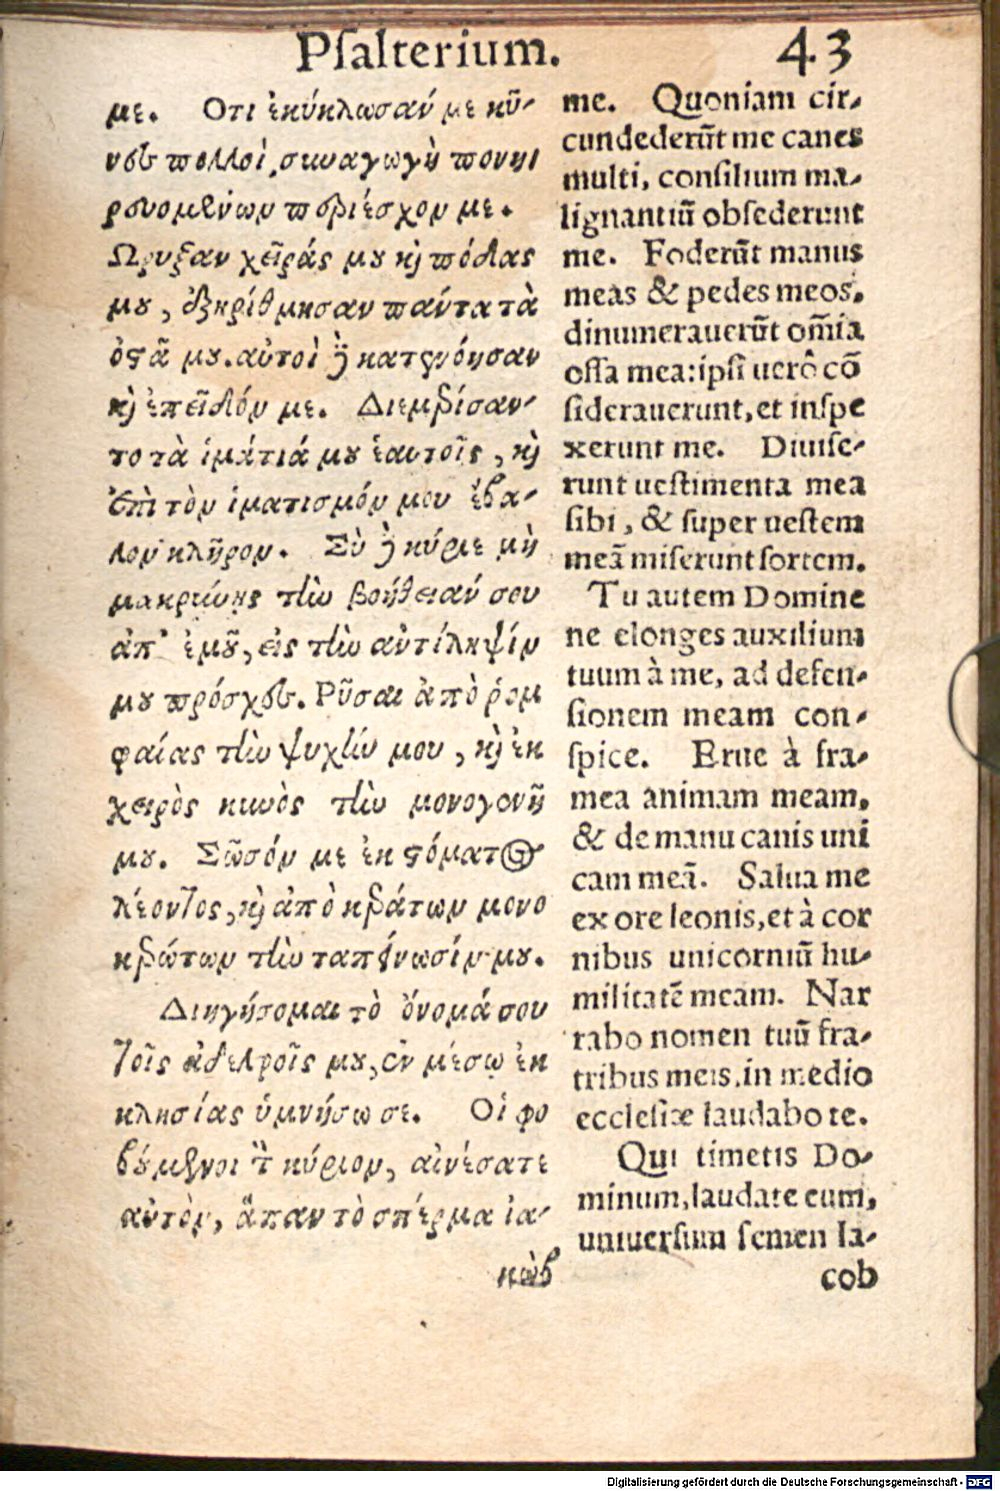 Psalterium. 43
με. Οτι ἐκύκλωσαν με κύ-
νες πολλοὶ, συναγωγὴ πονη
ρευομένων περιέσχον με.
Ωρυξαν χεῖράς μου καὶ πόδας
μου, ἐξηρίθμησαν πάντα τὰ
ὀστᾶ μου. αὐτοὶ δὲ κατενόησαν
καὶ ἐπεῖδόν με. Διεμερίσαν-
το τὰ ἱμάτιά μου ἑαυτοῖς, καὶ
ἐπὶ τὸν ἱματισμόν μου ἔβα-
λον κλῆρον. Σὺ δὲ κύριε μὴ
μακρύνῃς τὴν βοήθειάν σου
ἀπ' ἐμοῦ, εἰς τὴν ἀντίληψίν
μου πρόσχες. Ρῦσαι ἀπὸ ῥομ
φαίας τὴν ψυχήν μου, καὶ ἐκ
χειρὸς κυνὸς τὴν μονογενῆ
μου. Σῶσόν με ἐκ στόματος
λέοντος, καὶ ἀπὸ κεράτων μονο
κερώτων τὴν ταπείνωσίν μου.
Διηγήσομαι τὸ ὄνομά σου
τοῖς ἀδελφοῖς μου, ἐν μέσῳ ἐκ
κλησίας ὑμνήσω σε. Οἱ φο
βούμενοι τὸν κύριον, αἰνέσατε
αὐτὸν, ἅπαν τὸ σπέρμα ἰα-
κὼβ
me. Quoniam cir-
cundederūt me canes
multi, consilium ma-
lignantiū obsederunt
me. Foderūt manus
meas & pedes meos,
dinumerauerūt om̄ia
ossa mea: ipsi uerò cō
siderauerunt, et inspe
xerunt me. Diuise-
runt uestimenta mea
sibi, & super uestem
meā miserunt sortem.
Tu autem Domine
ne elonges auxilium
tuum à me, ad defen-
sionem meam con-
spice. Erue à fra-
mea animam meam,
& de manu canis uni
cam meā. Salua me
ex ore leonis, et à cor
nibus unicorniū hu-
militatē meam. Nar
rabo nomen tuū fra-
tribus meis, in medio
ecclesiæ laudabo te.
Qui timetis Do-
minum, laudate eum,
uniuersum semen Ia-
cob
Digitalisierung gefördert durch die Deutsche Forschungsgemeinschaft - DFG